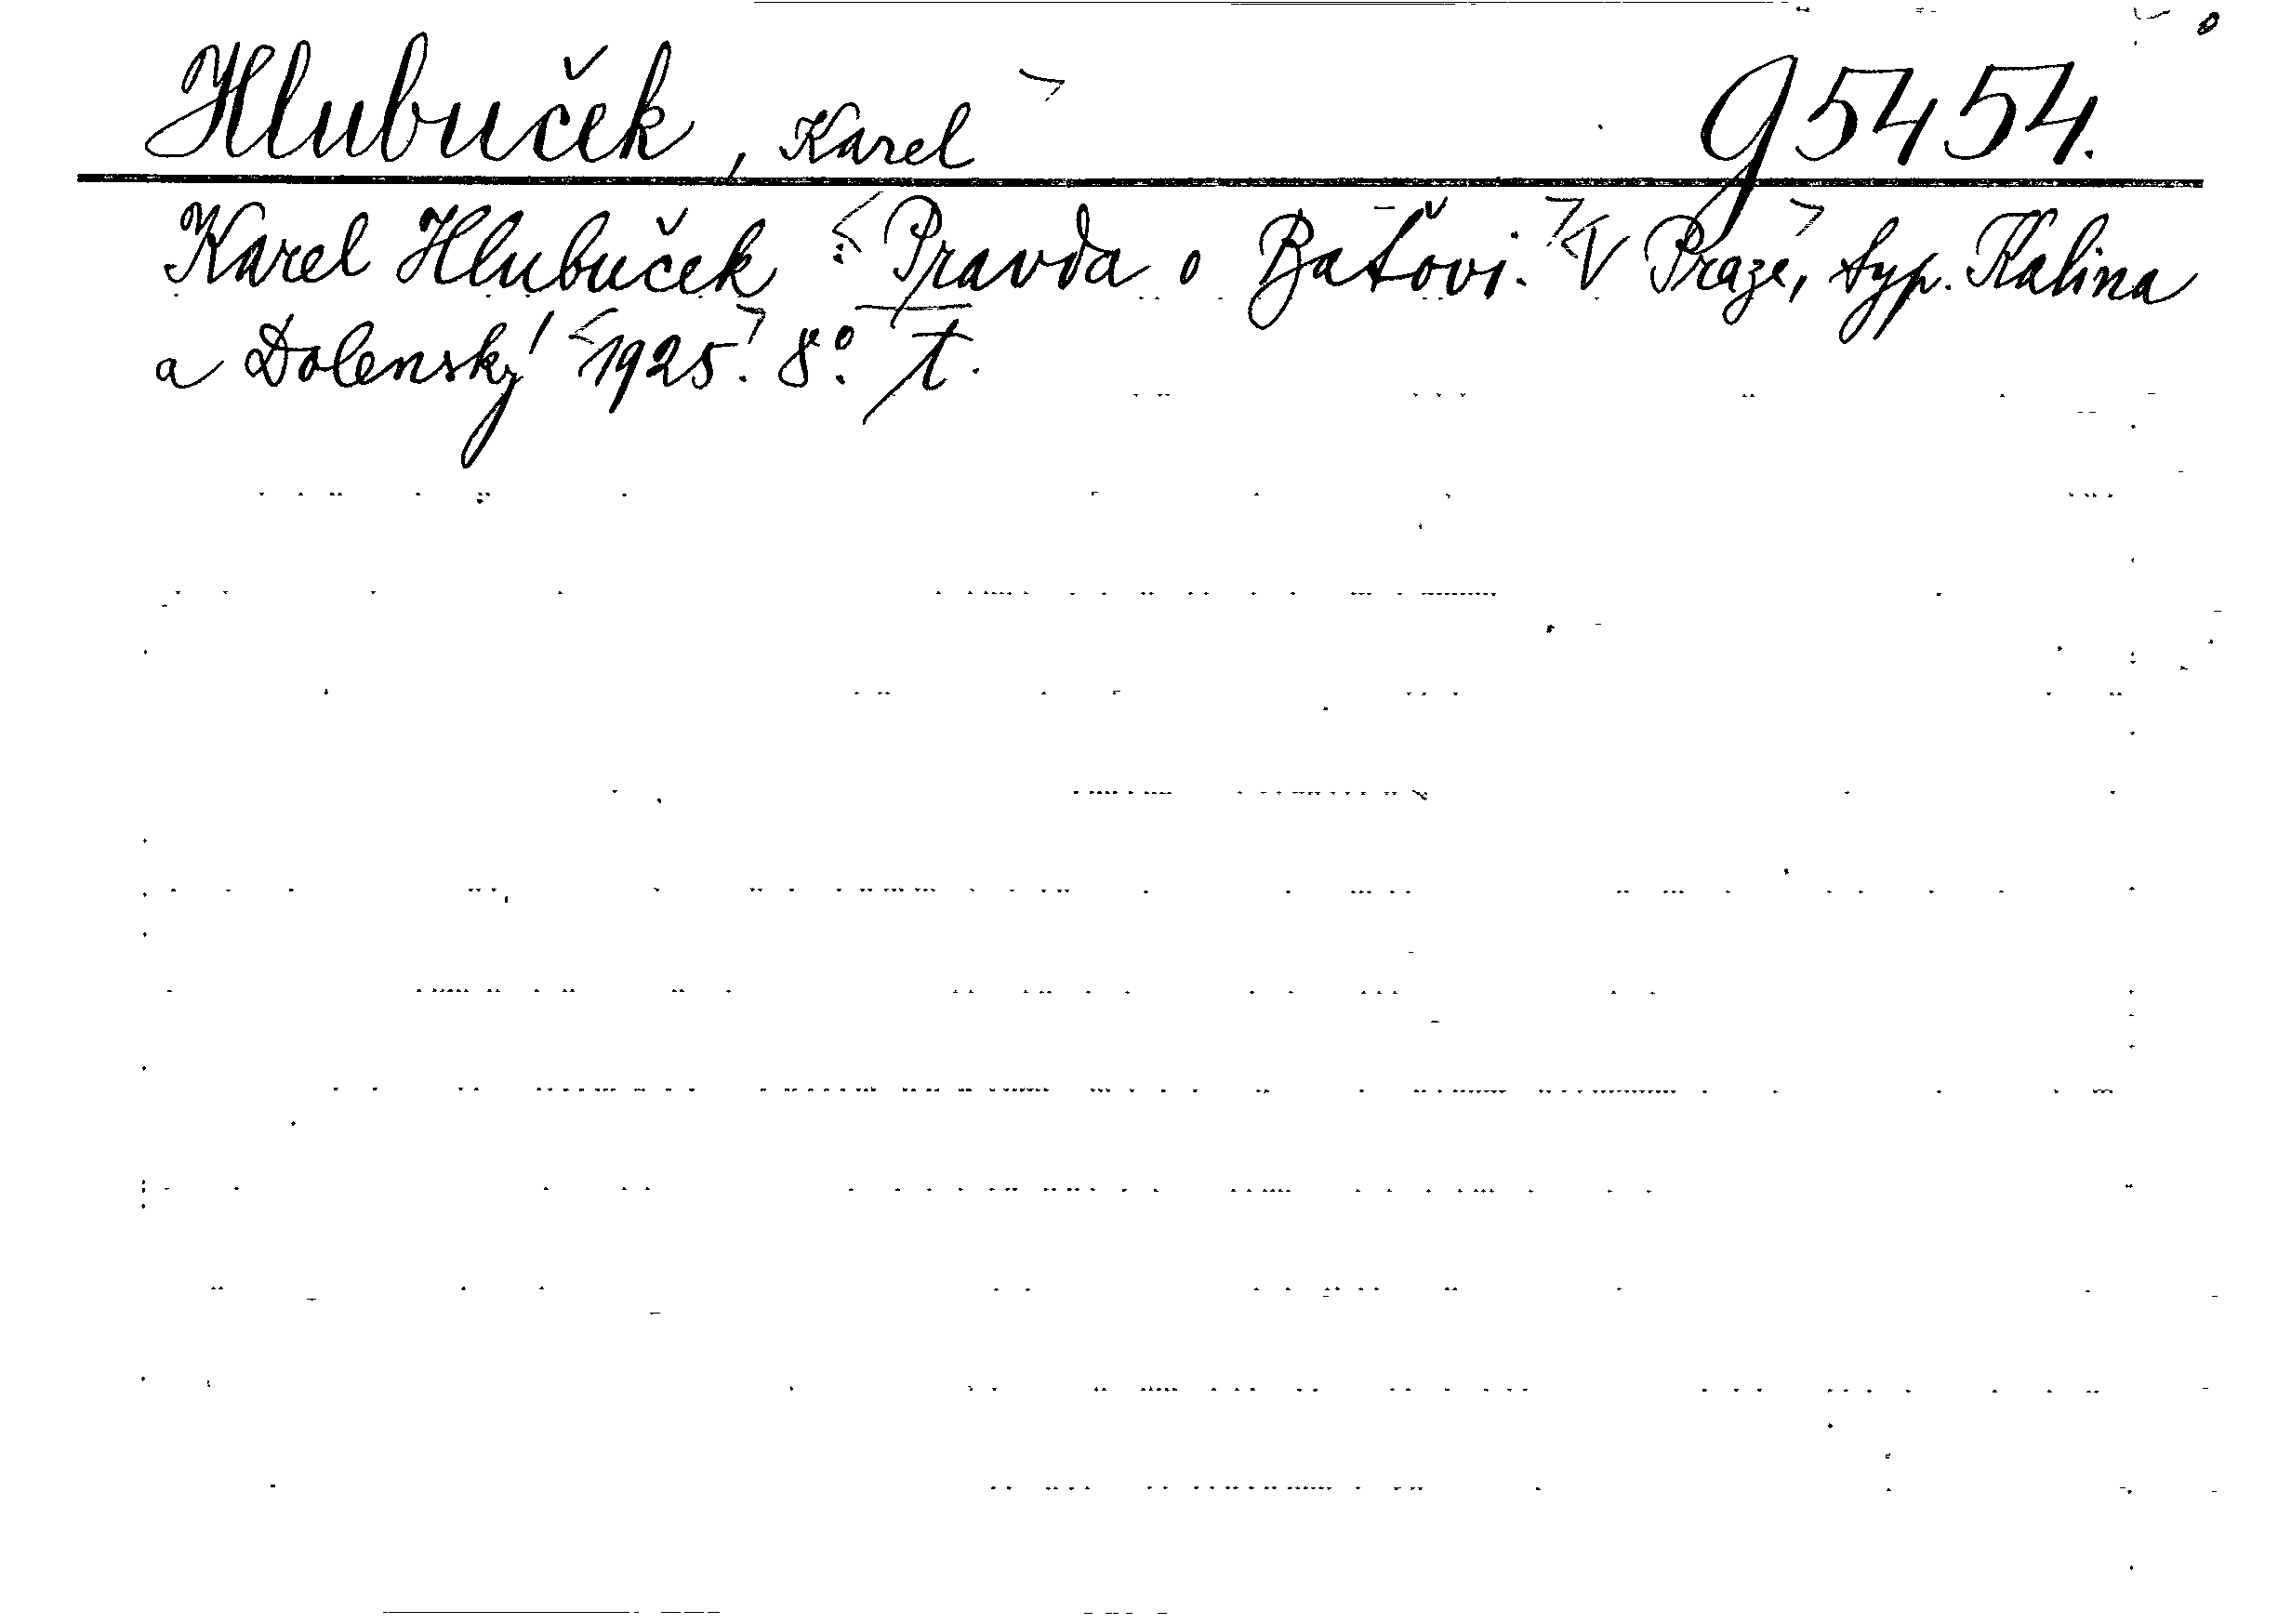 Hlubuček, Karel g 5454.
Karel Hlubuček : Pravda o Baťovi. V Praze, typ. Kalina
a Dolenský 1925. 8°. t.